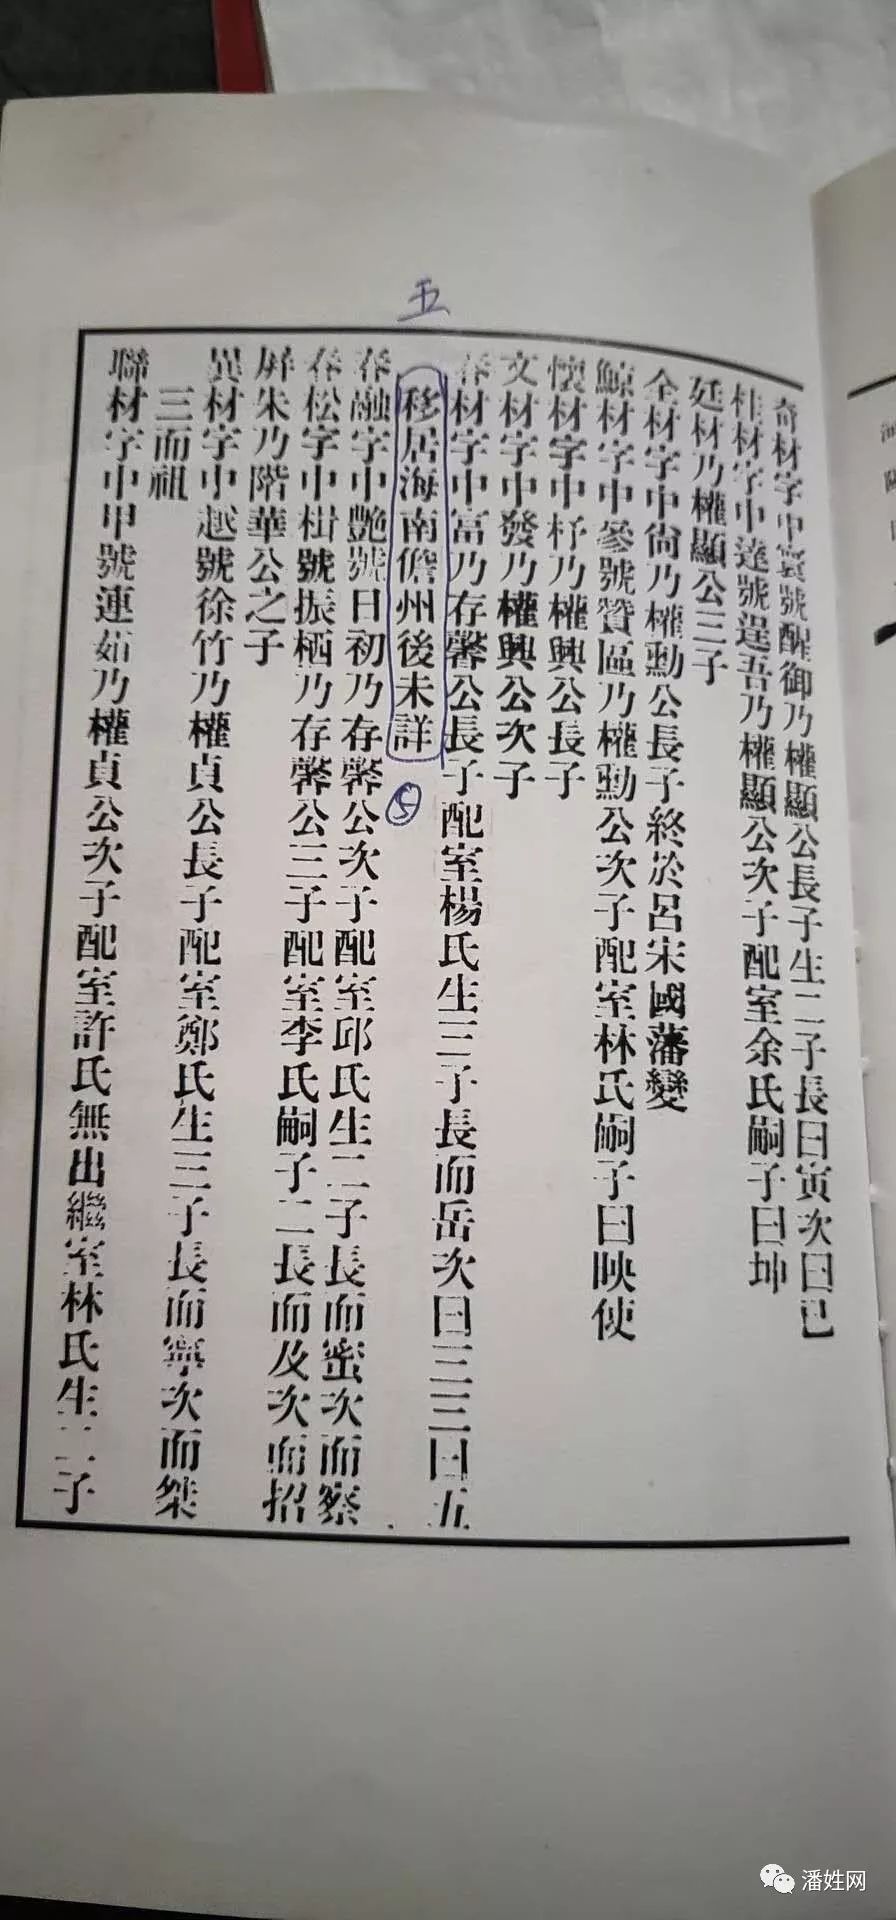 五
奇材字中寰號醒御乃權顯公長子生二子長曰寅次曰已
桂材字中達號逞吾乃權顯公次子配室余氏嗣子曰坤
廷材乃權顯公三子
全材字中尚乃權勳公長子終於呂宋國藩變
鯨材字中參號贊區乃權勳公次子配室林氏嗣子曰映使
懷材字中杼乃權興公長子
文材字中發乃權興公次子
春材字中富乃存馨公長子配室楊氏生三子長而岳次曰三三曰五
移居海南儋州後未詳
⑤
春融字中艷號日初乃存馨公次子配室邱氏生二子長而蜜次而察
春松字中楫號振栖乃存馨公三子配室李氏嗣子二長而及次而招
屏朱乃階華公之子
異材字中越號徐竹乃權貞公長子配室鄭氏生三子長而寧次而桀
三而祖
聯材字中甲號連茹乃權貞公次子配室許氏無出繼室林氏生二子
潘姓网